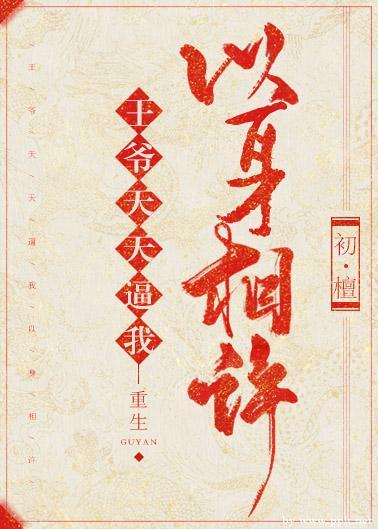 以身相许
王爷天天逼我
重生
GUYAN
初·檀
王/爷/天/天/逼/我/以/身/相/许/